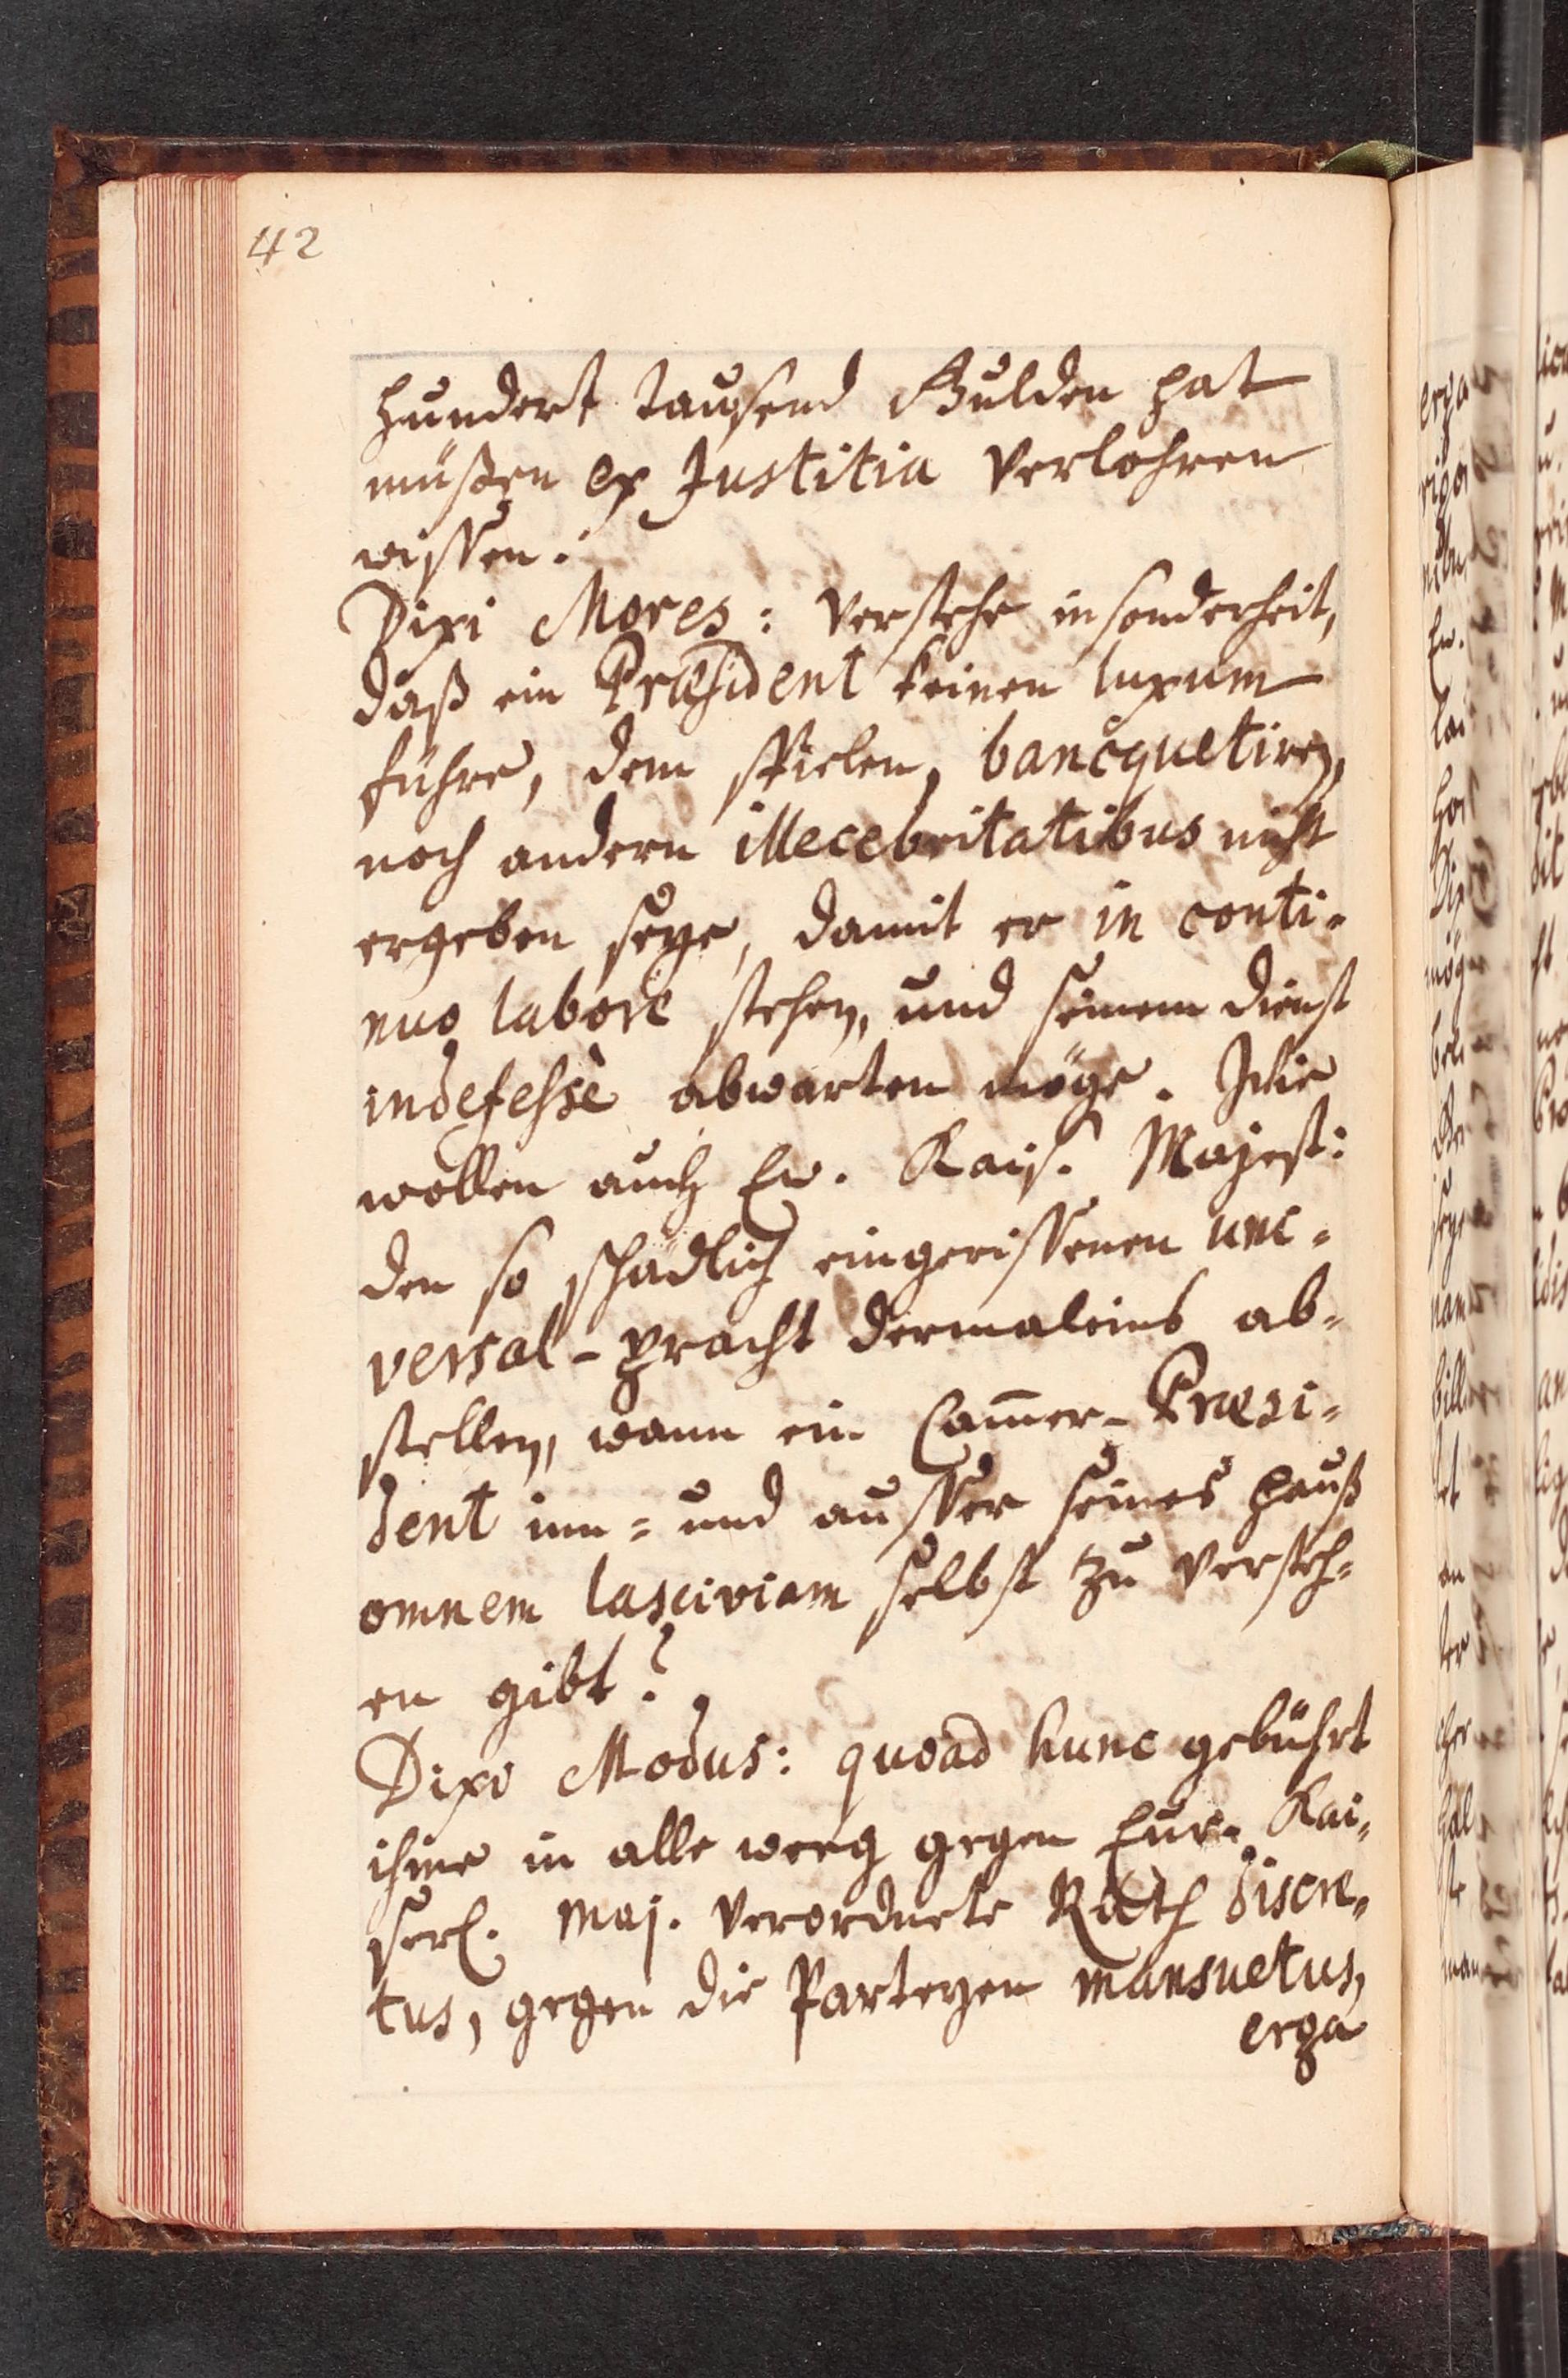 42
hundert tausend Gulden hat
müßen ex Justitia verlohren
wissen.
Dixi Mores: verstehe insonderheit,
daß ein Præsident keinen luxum
führe, dem spielen, bancquetiren,
noch andern illecebritatibus nicht
ergeben seye, damit er in conti-
nuo labore stehen, und seinem dienst
indefessè abwarten möge. Wie
wollen auch Ew. Kais. Majest:
den so schädlich eingerissenen uni-
versal-pracht dermaleins ab-
stellen, wann ein Cam̄er-Præsi-
dent inn- und ausser seines hauß
omnem lasciviam selbst zu versteh-
en gibt?
Dixi Modus: quoad hunc gebührt
ihme in alle weeg gegen Eur. Kai-
serl. Maj. verordnete Räth discre-
tus, gegen die Parteyen mansuetus,
erga